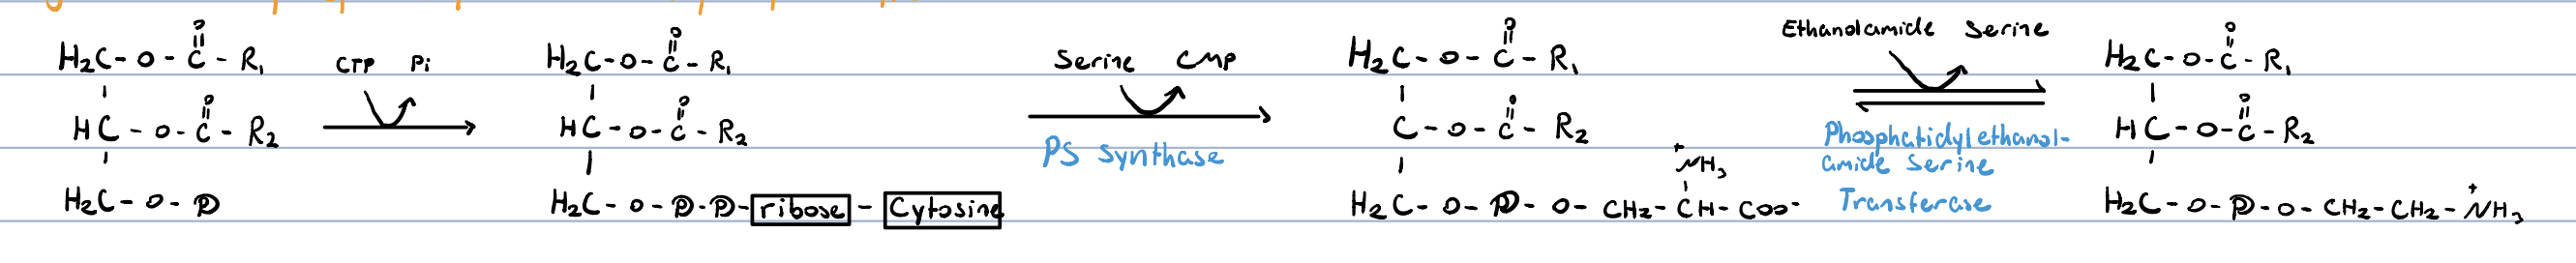 H₂C - O - C - R₁
O
HC - O - C - R₂
O
H₂C - O - P
CTP Pi
H₂C - O - C - R₁
O
HC - O - C - R₂
O
H₂C - O - P - P - ribose - Cytosine
Serine CMP
PS Synthase
H₂C - O - C - R₁
O
C - O - C - R₂
O
+
NH₃
H₂C - O - P - O - CH₂ - CH - COO-
Ethanolamide Serine
Phosphatidylethanol-
amide Serine
Transferase
H₂C - O - C - R₁
O
HC - O - C - R₂
O
+
H₂C - O - P - O - CH₂ - CH₂ - NH₃